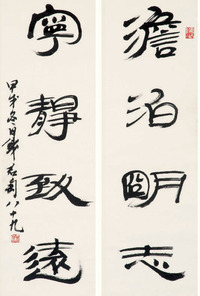 澹泊朙志
寧靜致遠
甲戌冬日 八十九